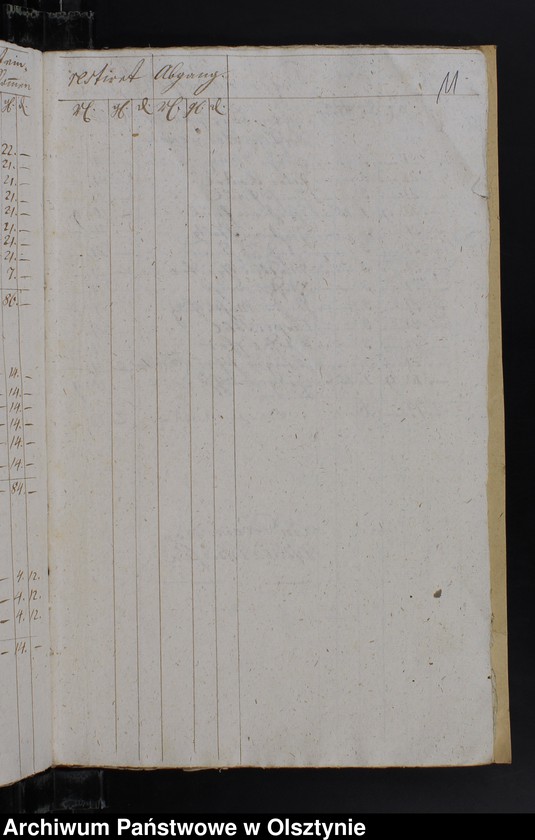 restiret Abgang.
11
gl. d
rl. gl. d rl. gl. d.
22. —
21. —
21. —
21. —
21. —
21. —
21. —
21. —
7. —
86. —
14. —
14. —
14. —
14. —
14. —
14. —
84. —
— 4. 12.
— 4. 12.
— 4. 12.
— 14. —
Archiwum Państwowe w Olsztynie